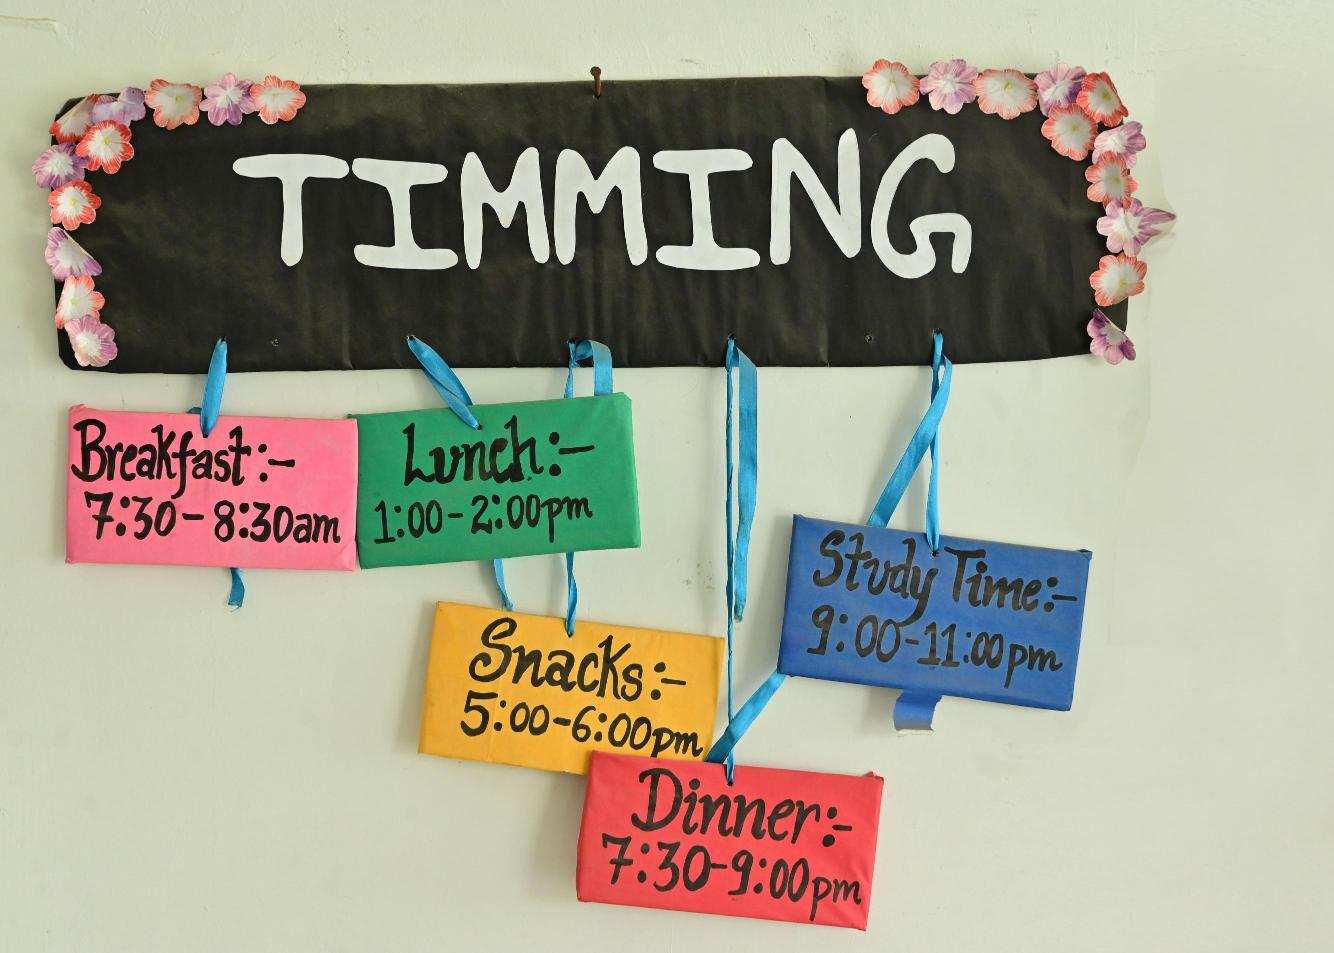 TIMMING
Breakfast:-
7:30-8:30am
Lunch:-
1:00-2:00pm
Snacks:-
5:00-6:00pm
Dinner:-
7:30-9:00pm
Study Time:-
9:00-11:00pm